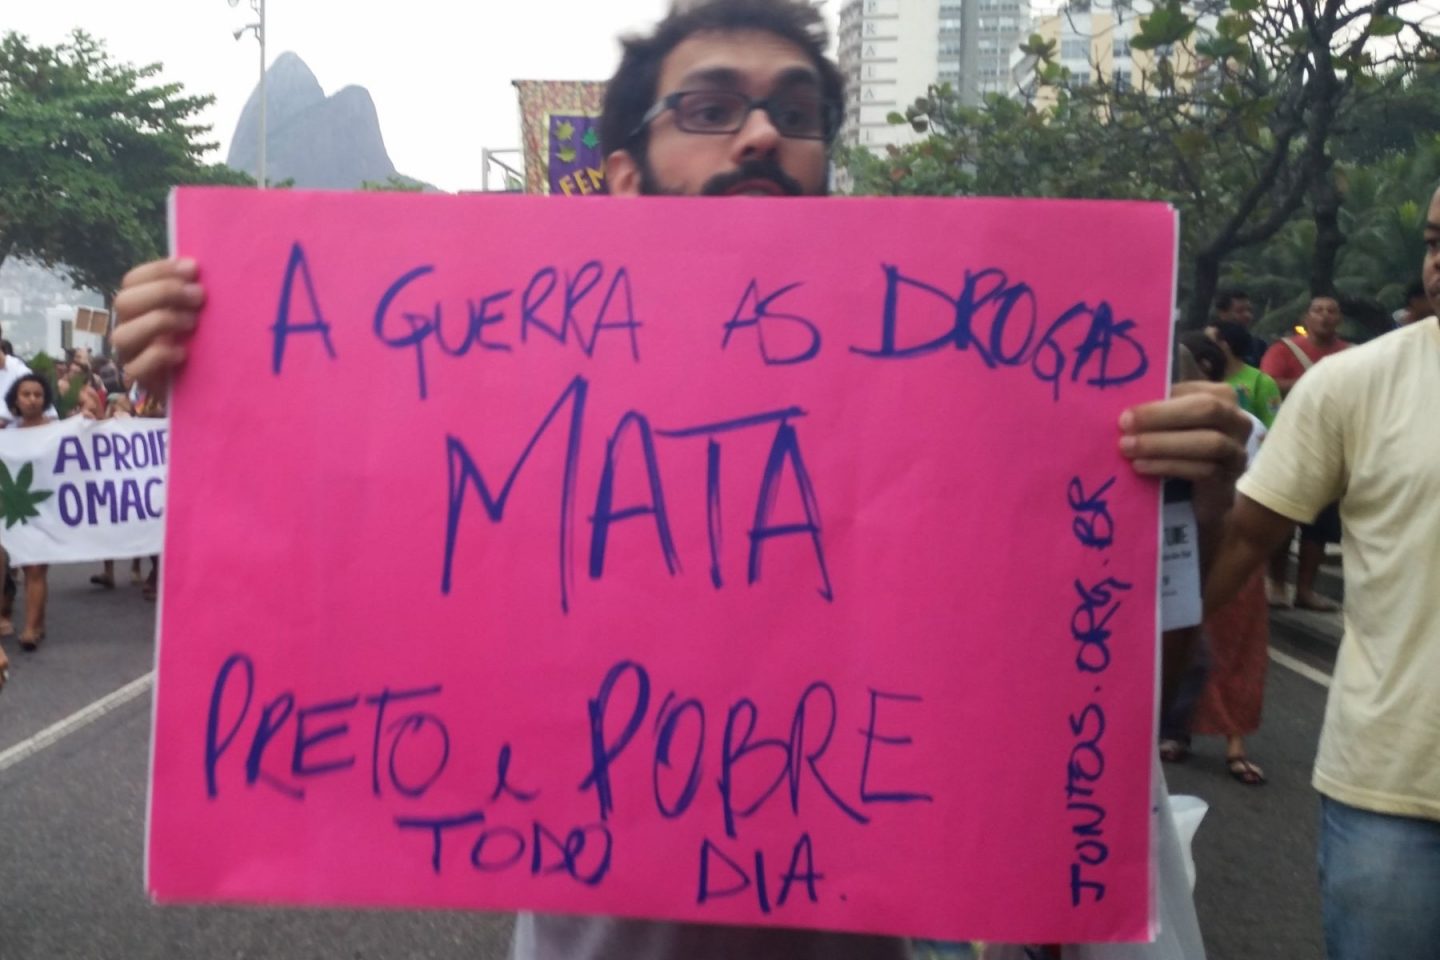 A GUERRA AS DROGAS
MATA
PRETO e POBRE
TODO DIA.
JUNTOS.ORG.BR
FEM
APROIB
OMAC